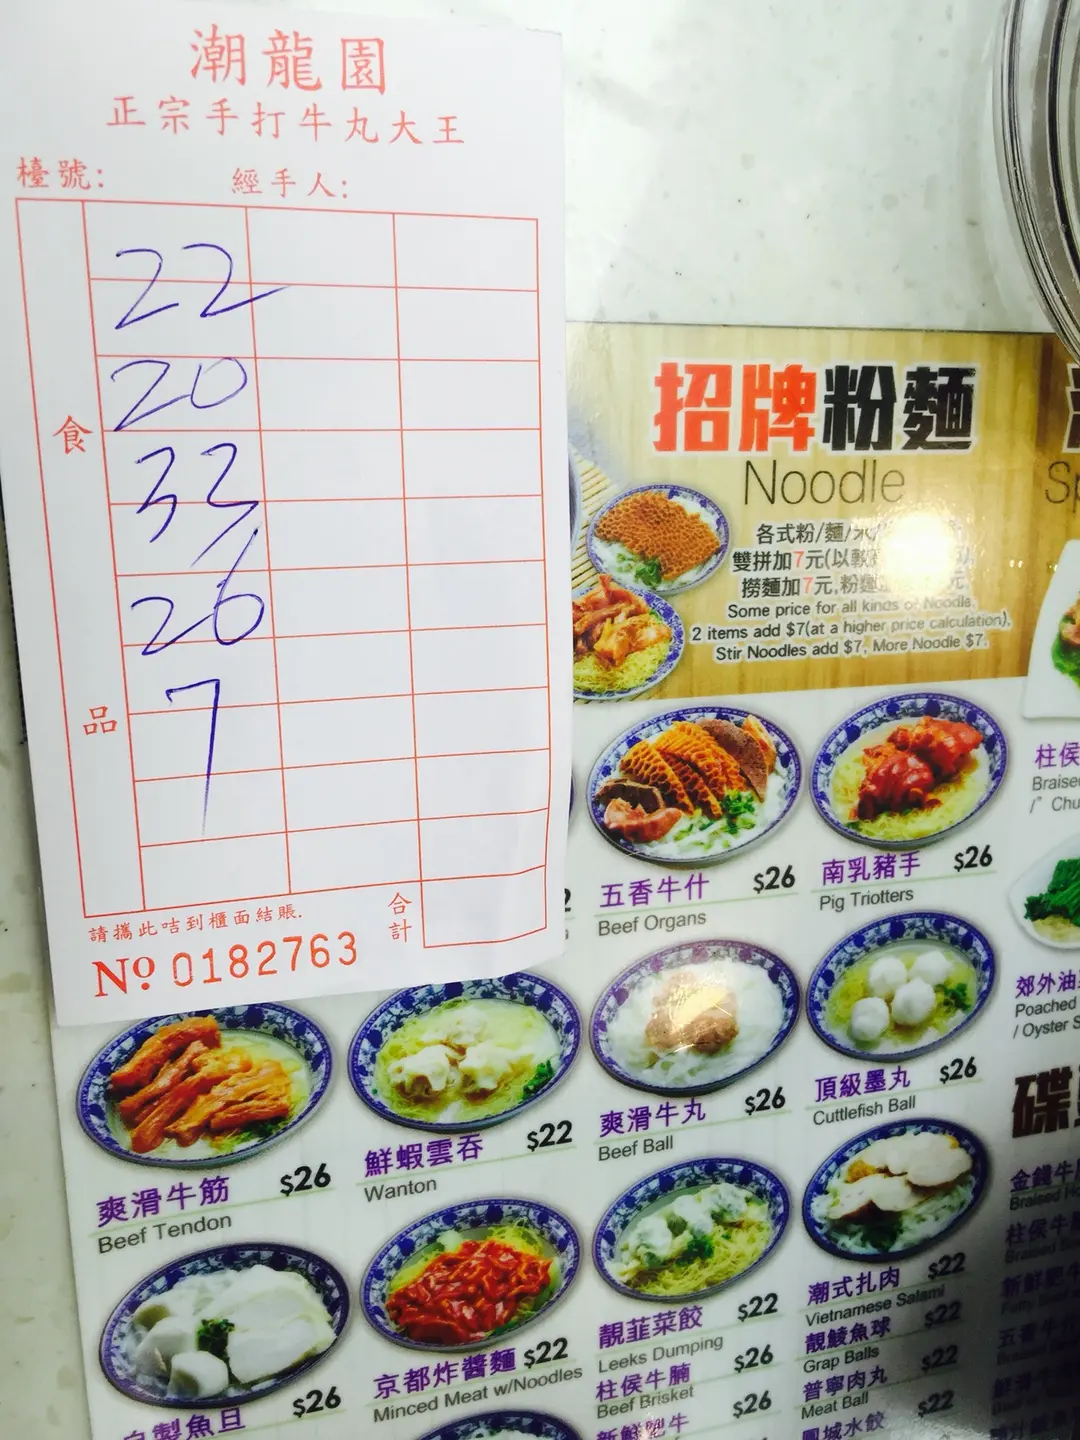 潮龍園
正宗手打牛丸大王
檯號: 經手人:
食品
22
20
33
26
7
合計
請攜此咭到櫃面結賬.
Nº 0182763
招牌粉麵
Noodle
各式粉/麵/
雙拼加7元(以
撈麵加7元,粉麵
Some price for all kinds of Noodle.
2 items add $7(at a higher price calculation),
Stir Noodles add $7, More Noodle $7.
五香牛什 $26
Beef Organs
南乳豬手 $26
Pig Triotters
爽滑牛筋 $26
Beef Tendon
鮮蝦雲吞 $22
Wanton
爽滑牛丸 $26
Beef Ball
頂級墨丸 $26
Cuttlefish Ball
自製魚旦 $26
京都炸醬麵 $22
Minced Meat w/Noodles
靚韮菜餃 $22
Leeks Dumping
柱侯牛腩 $26
Beef Brisket
新鮮肥牛 $26
潮式扎肉 $22
Vietnamese Salami
靚鯪魚球 $22
Grap Balls
普寧肉丸 $22
Meat Ball
鳳城水餃 $22
柱侯
Braise
/" Chu
郊外油
Poached
/ Oyster S
碟
金錢牛
Braised Ho
柱侯牛
Braised
新鮮肥牛
五香牛